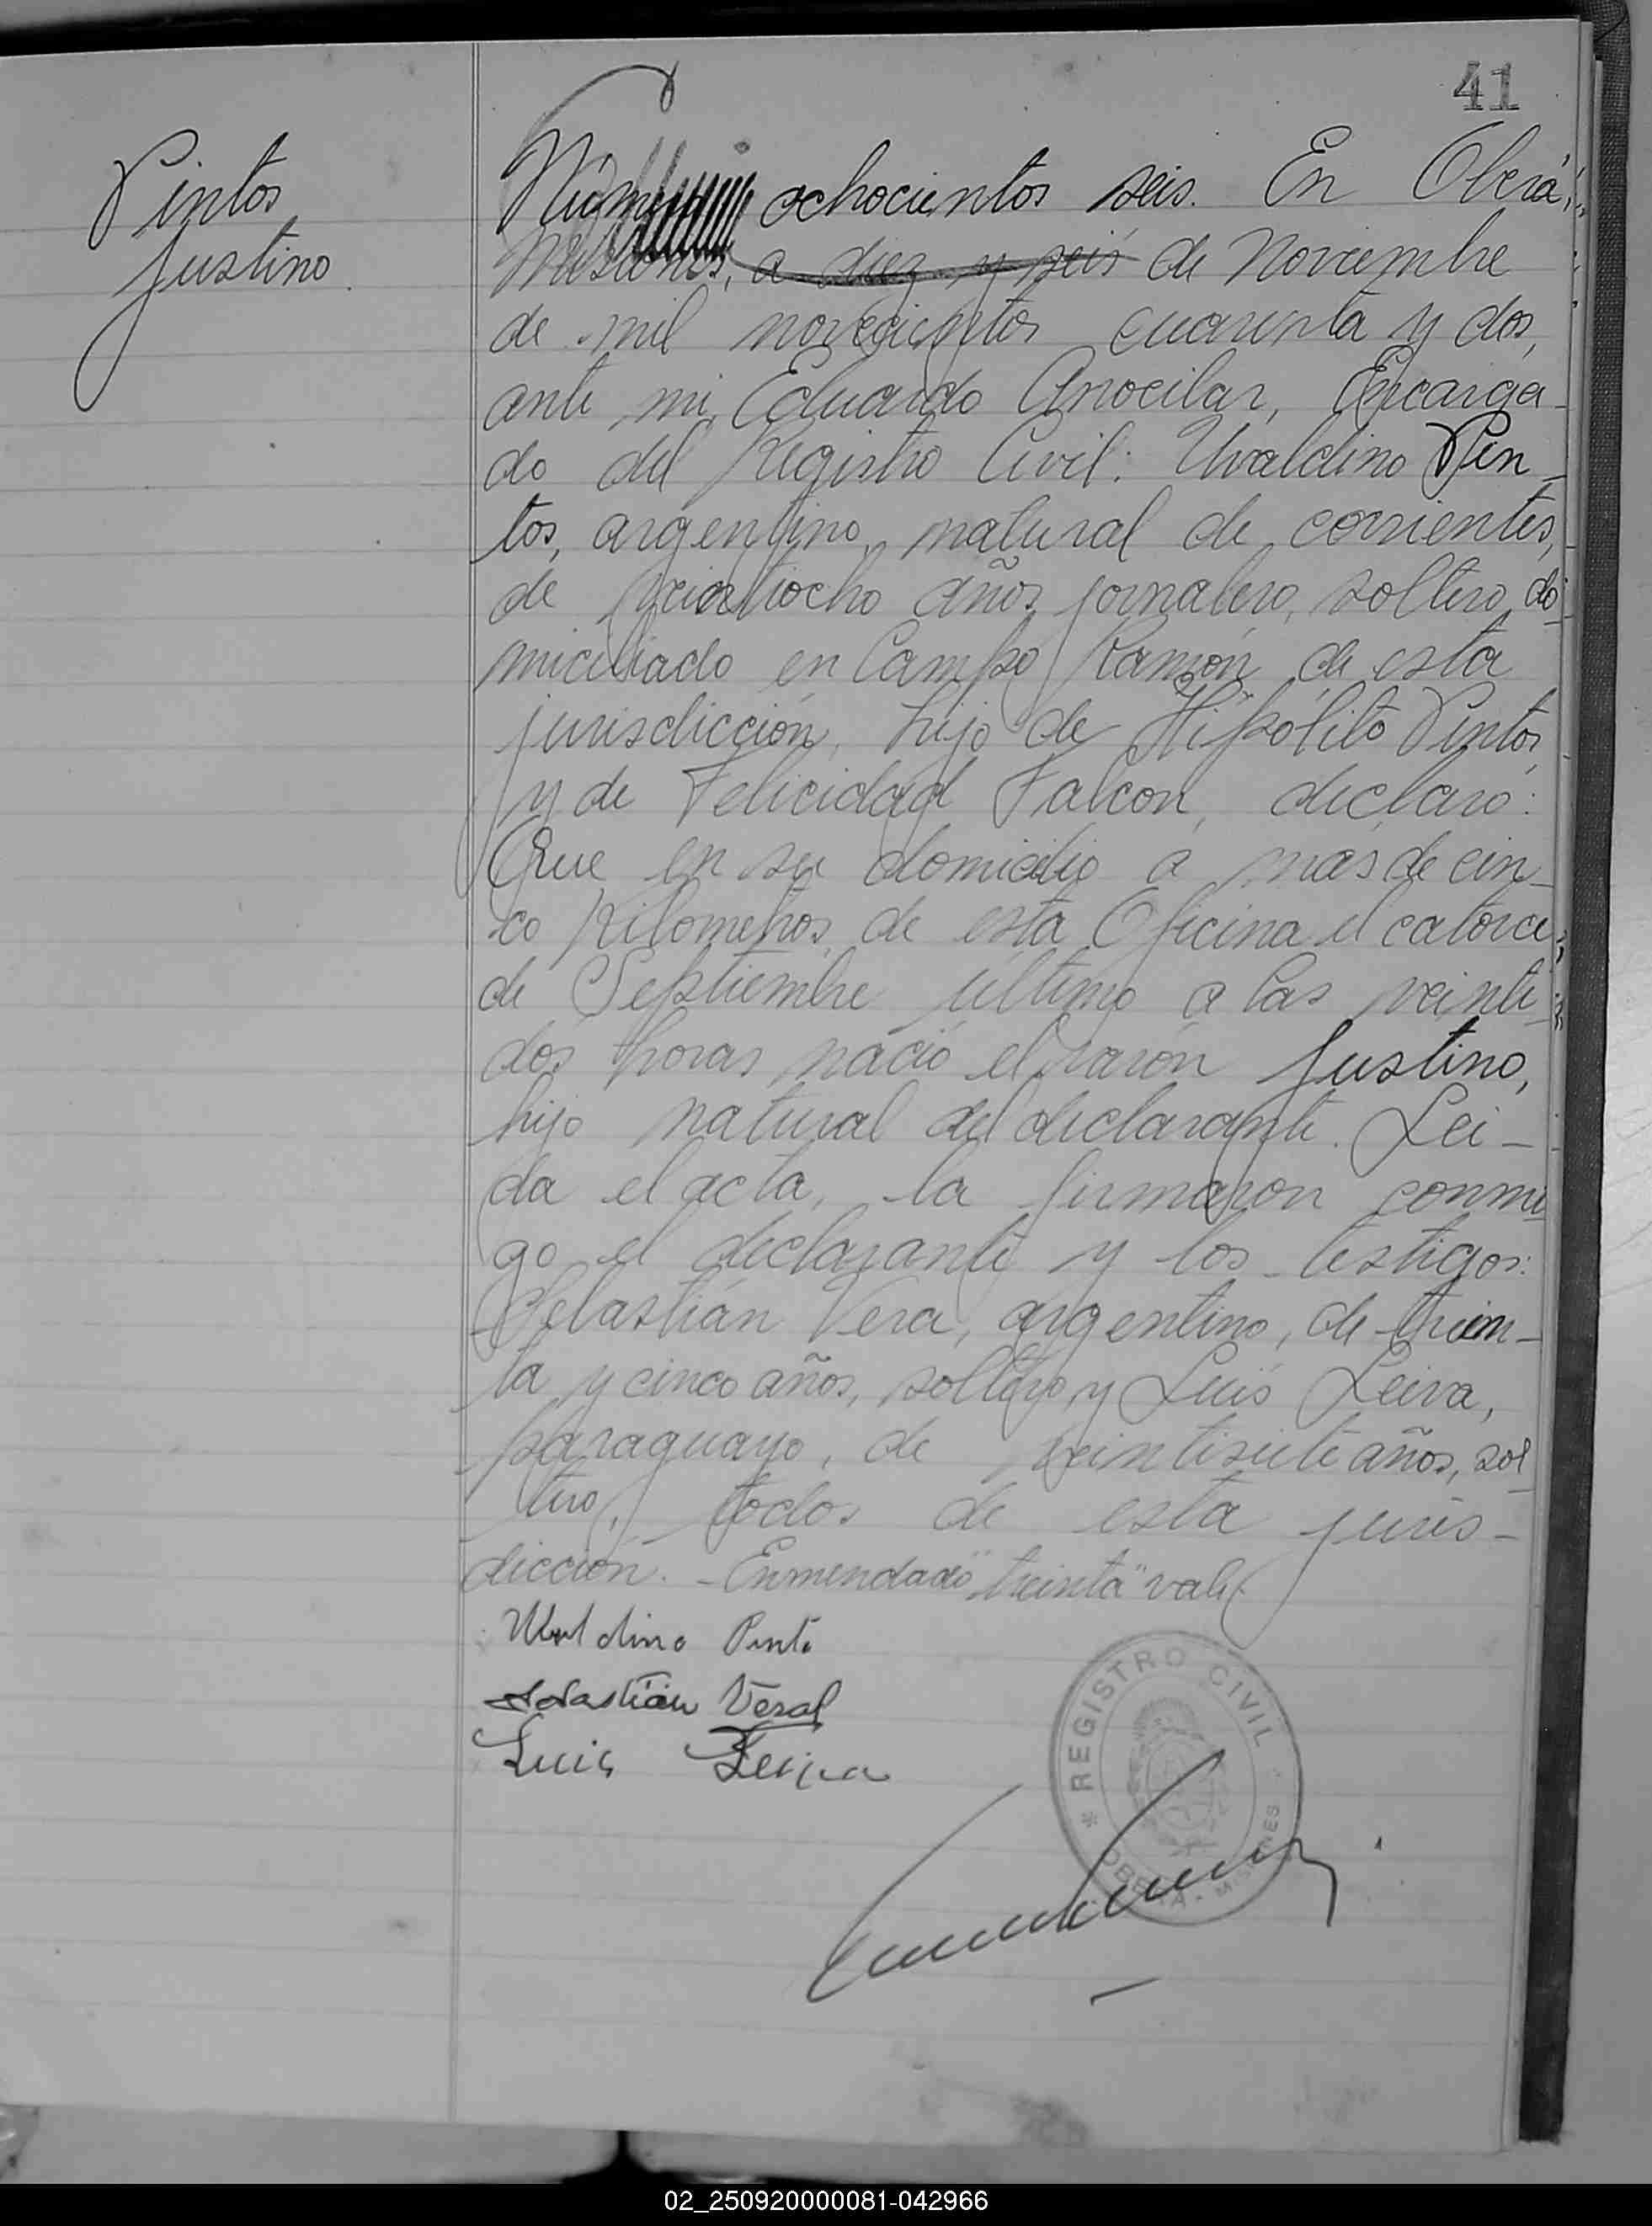 41
Pintos
Justino
Número ochocientos seis. En Oberá,
Misiones, a diez y seis de Noviembre
de mil novecientos cuarenta y dos,
ante mi, Eduardo Anocibar, Encarga-
do del Registro Civil: Uvaldino Pin-
tos, argentino, natural de corrientes,
de veintiocho años, jornalero, soltero, do-
miciliado en Campo Ramón, de esta
jurisdicción, hijo de Hipólito Pintos
y de Felicidad Falcon, declaró:
Que en su domicilio a mas de cin-
co Kilometros de esta Oficina el catorce
de Septiembre último a las veinti-
dos horas nació el varón Justino,
hijo natural del declarante. Lei-
da el acta, la firmaron conmi-
go el declarante y los testigos:
Sebastián Vera, argentino, de trein-
ta y cinco años, soltero, y Luis Leiva,
paraguayo, de veintisiete años, sol-
tero, todos de esta juris-
dicción. - Enmendado "treinta" vale.
Uvaldino Pinto
Sebastián Vera
Luis Leiva
REGISTRO CIVIL
OBERÁ - MISIONES
02_250920000081-042966